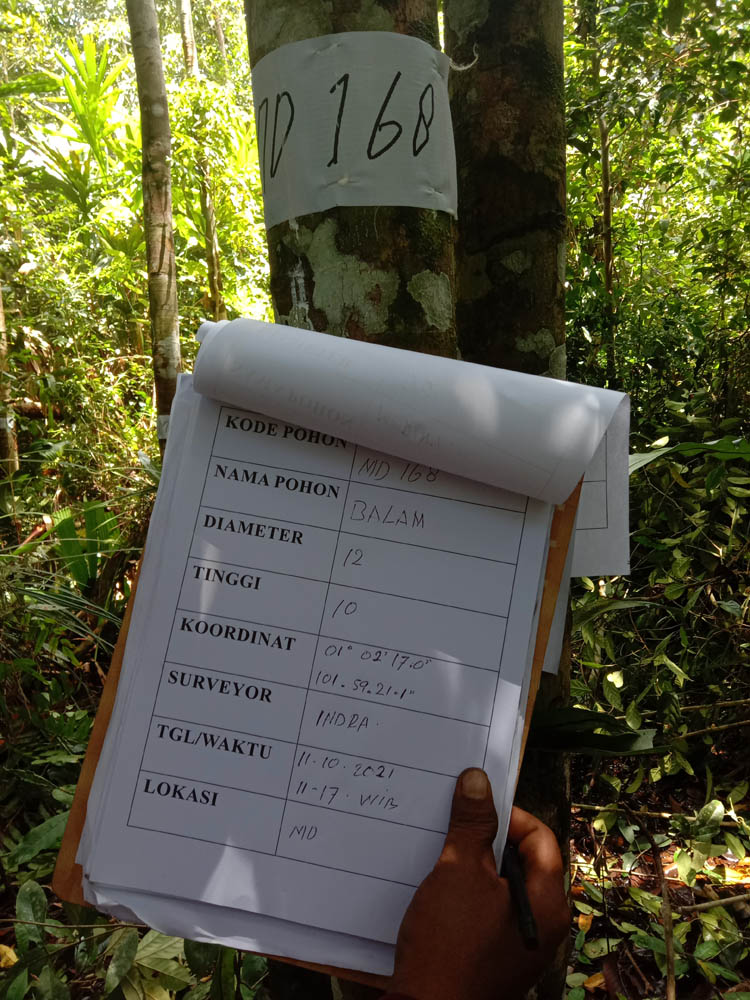 MD 168
KODE POHON MD 168
NAMA POHON BALAM
DIAMETER 12
TINGGI 10
KOORDINAT 01° 02' 17.0"
101-59-21-1"
SURVEYOR INDRA.
TGL/WAKTU 11-10-2021
11-17. WIB
LOKASI MD